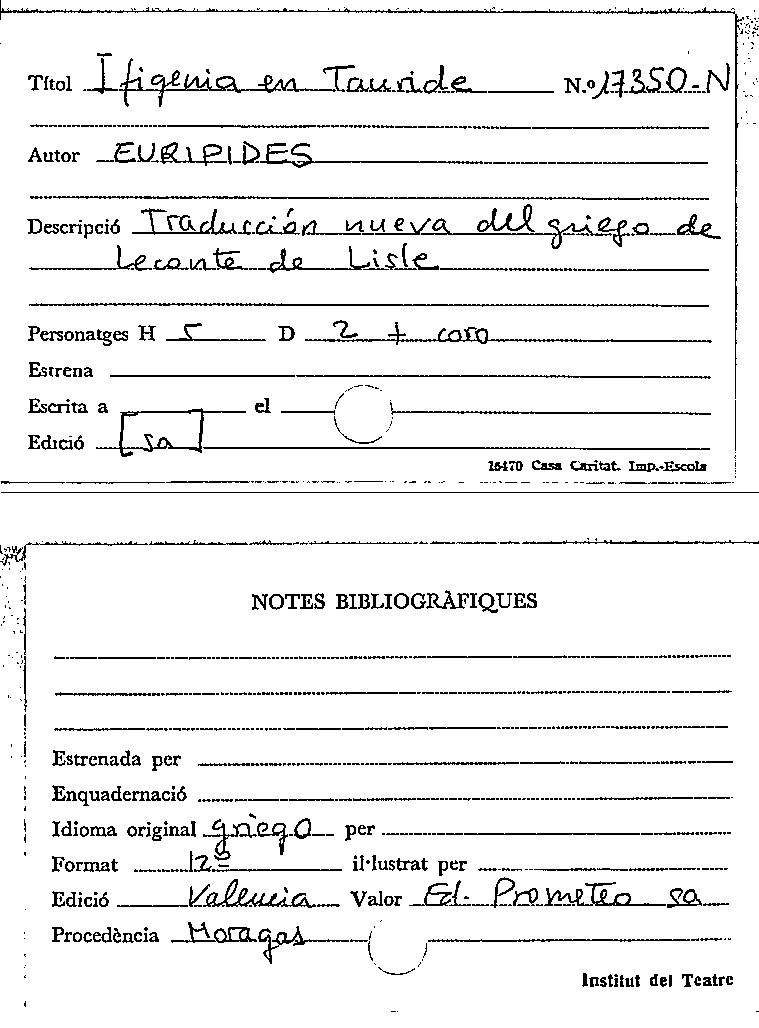 Títol Ifigenia en Tauride N.º 17350-N
Autor EURIPIDES
Descripció Traducción nueva del griego de
Leconte de Lisle
Personatges H 5 D 2 + coro
Estrena
Escrita a el
Edició [sa]
16470 Casa Caritat. Imp.-Escola
NOTES BIBLIOGRÀFIQUES
Estrenada per
Enquadernació
Idioma original griego per
Format 12º il·lustrat per
Edició Valencia Valor Ed. Prometeo sa
Procedència Moragas
Institut del Teatre